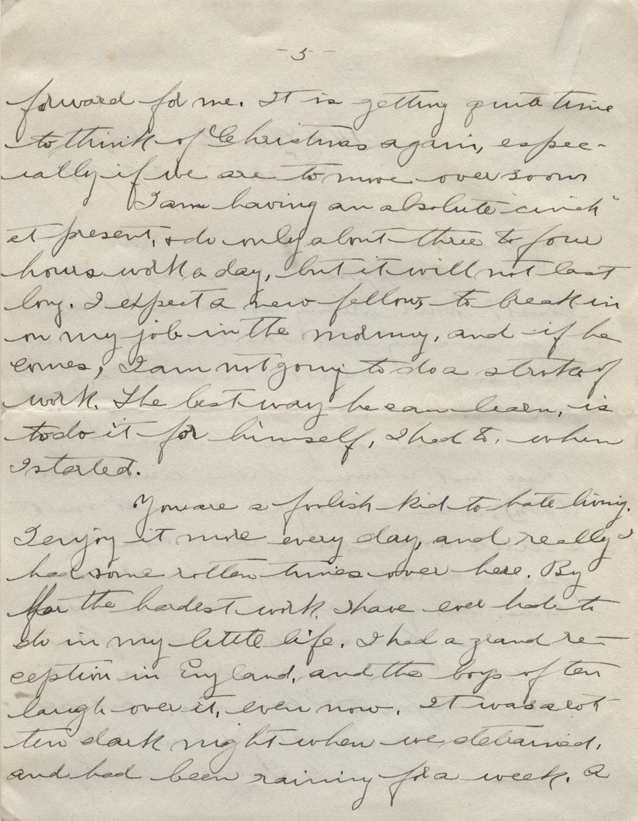 - 5 -
forward for me. It is getting quite time
to think of Christmas again, espec-
ially if we are to move over soon
I am having an absolute "cinch"
at present, & do only about three to four
hours work a day, but it will not last
long. I expect a new fellow, to break in
on my job in the morning, and if he
comes, I am not going to do a stroke of
work. The best way he can learn, is
to do it for himself, I had to. when
I started.
You are a foolish kid to hate living.
I enjoy it more every day, and really I
had some rotten times over here. By
far the hardest work I have ever had to
do in my little life. I had a grand re-
ception in England, and the boys often
laugh over it, even now. It was a rot-
ten dark night when we detrained,
and had been raining for a week. A